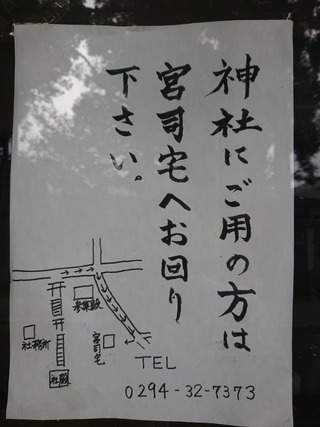 神社にご用の方は
宮司宅へお回り
下さい。
参集殿
宮司宅
社務所
社殿
TEL
0294-32-7373